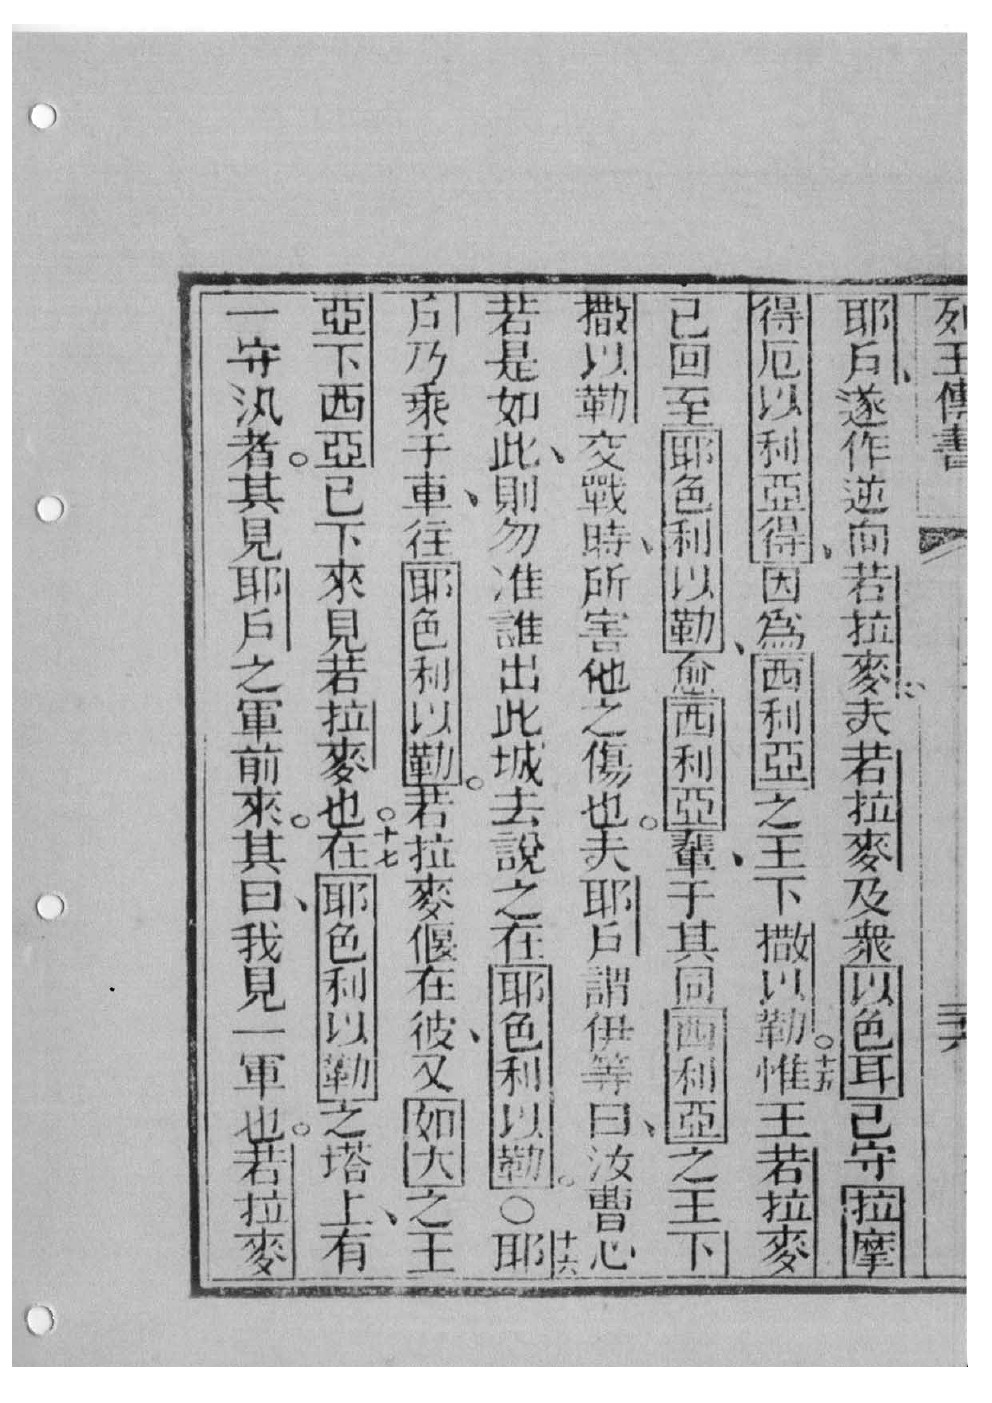 列王傳書
耶戶、遂作逆向若拉麥。夫若拉麥及衆以色耳已守拉摩
得厄以利亞得、因爲西利亞之王下撒以勒。十五惟王若拉麥
已回至耶色利以勒、愈西利亞輩、于其同西利亞之王下
撒以勒交戰時、所害他之傷也。夫耶戶謂伊等曰、汝曹心
若是如此、則勿准誰出此城去說之在耶色利以勒。○十六耶
戶乃乘于車、往耶色利以勒。若拉麥偃在彼、又如大之王
亞下西亞已下來見若拉麥也。十七在耶色利以勒之塔上、有
一守汛者。其見耶戶之軍前來。其曰、我見一軍也。若拉麥